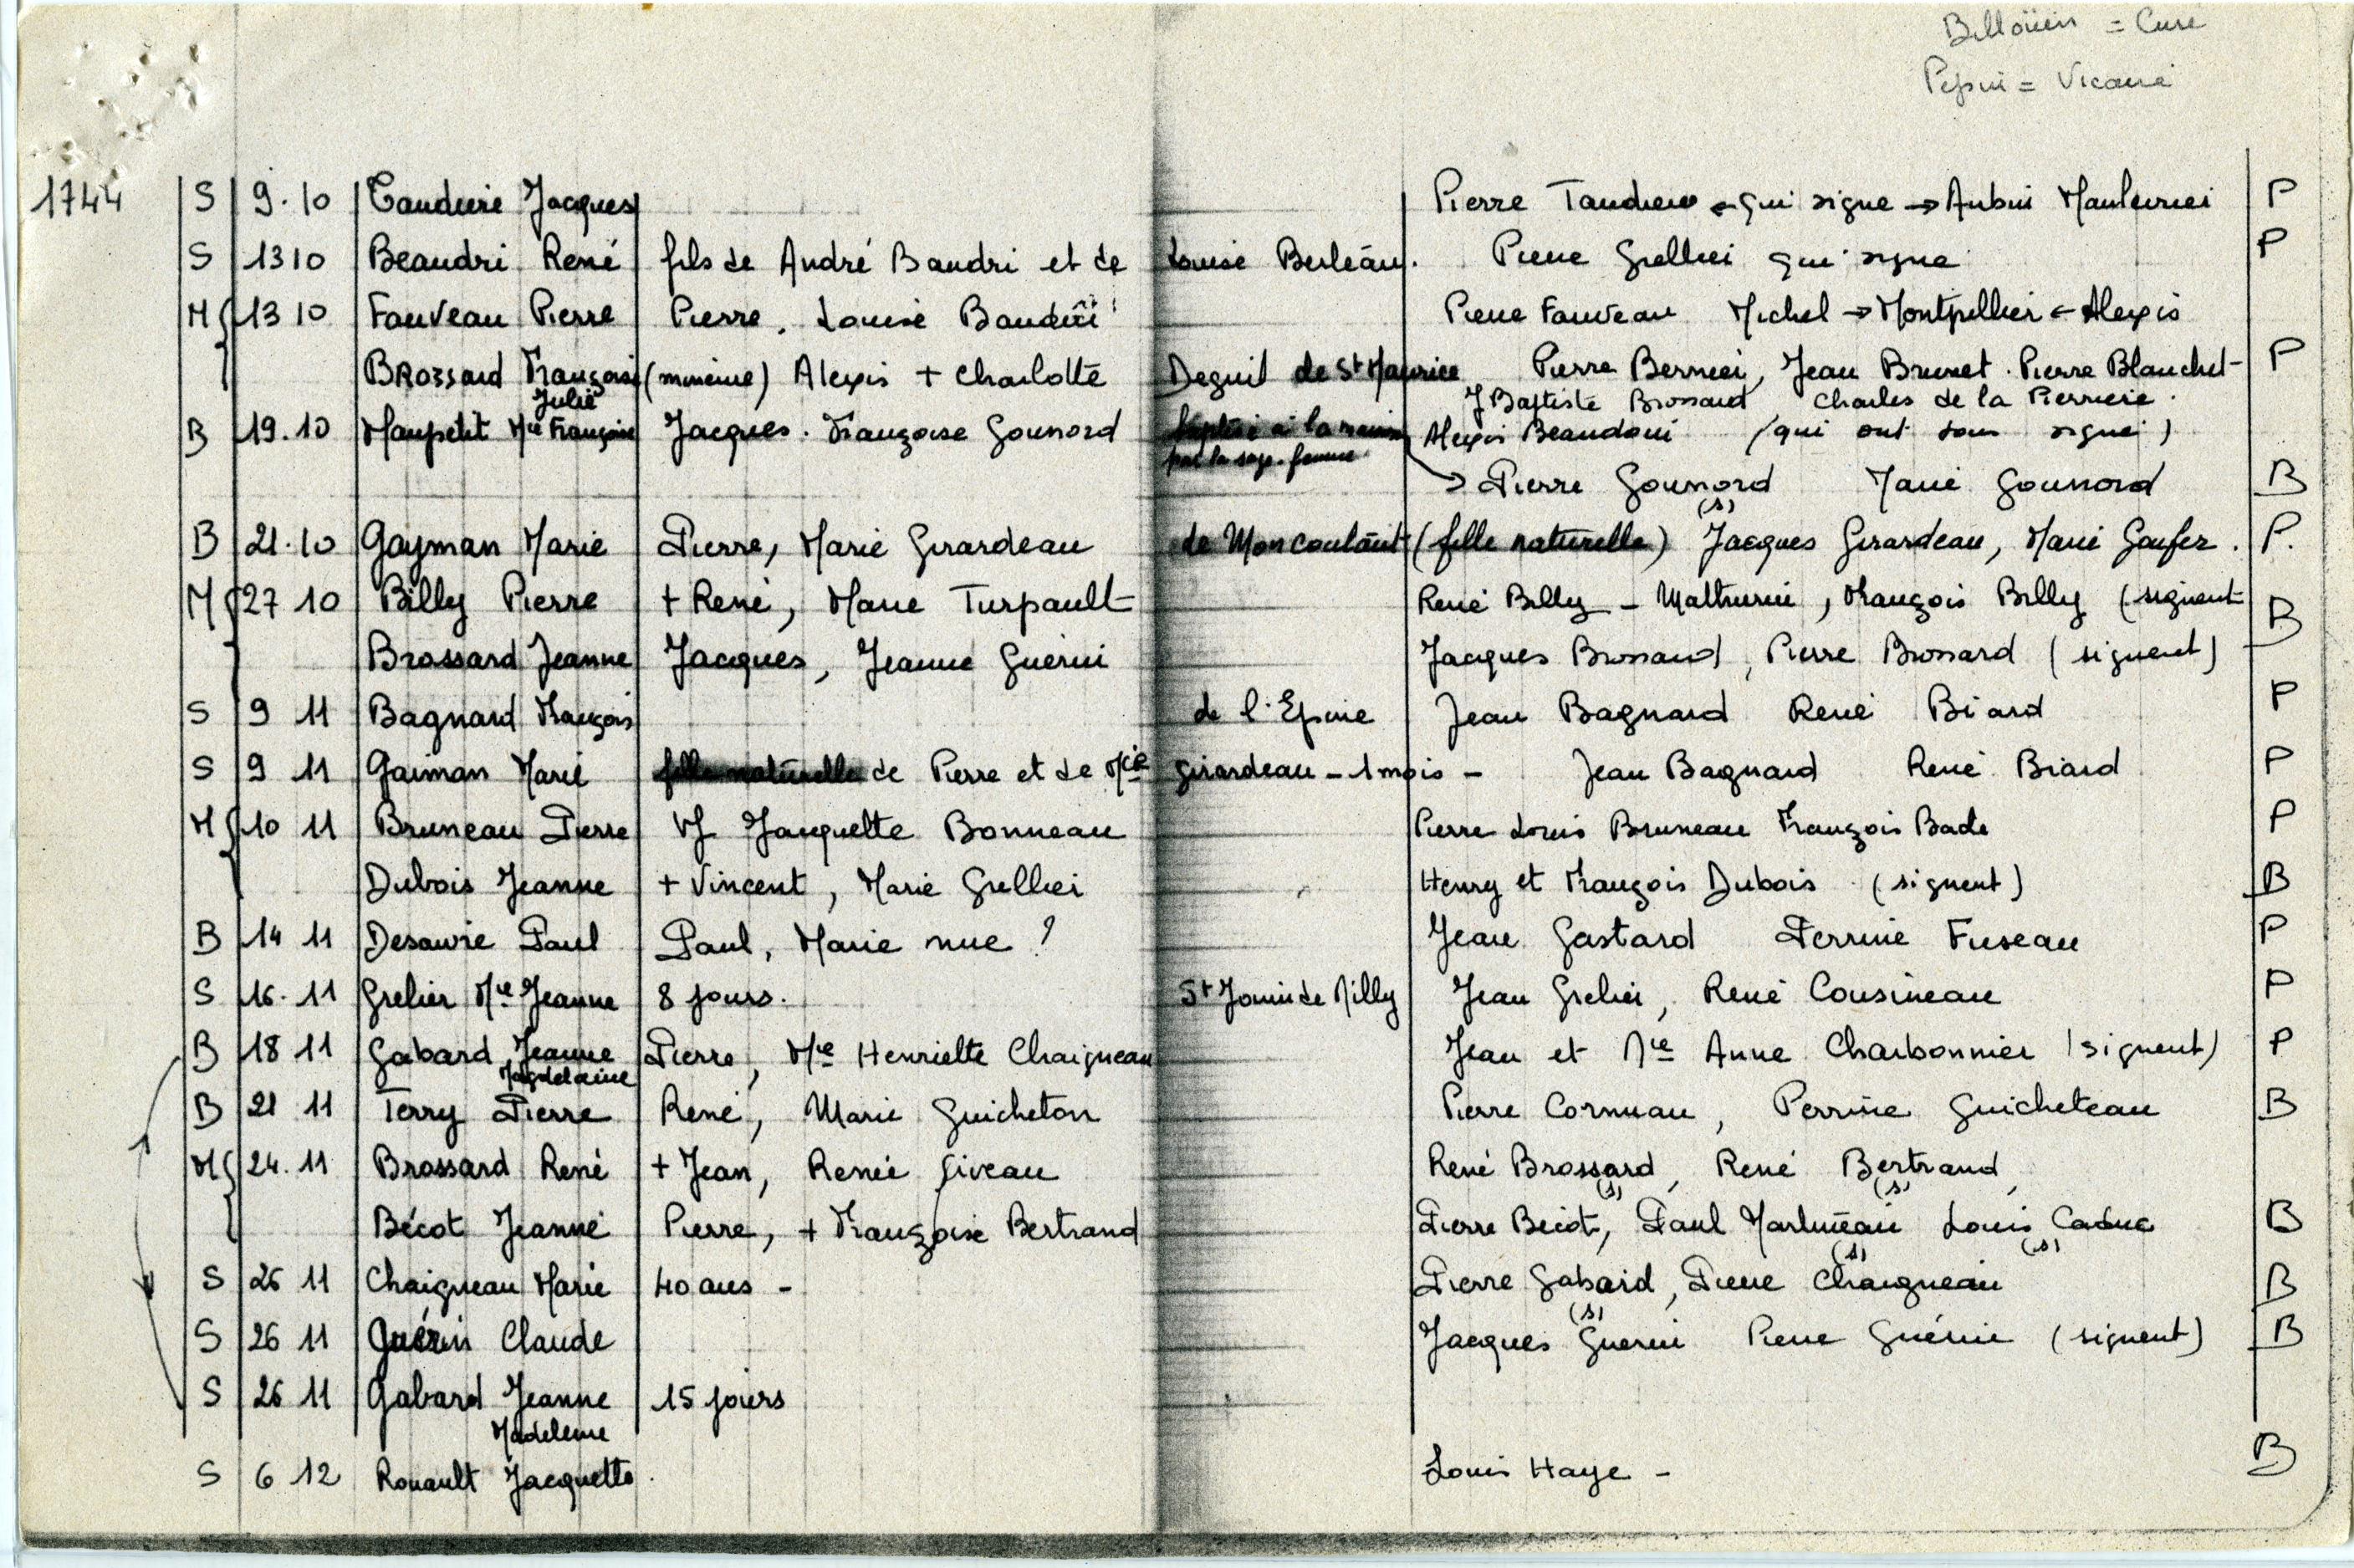 Billoüin = Cure
Pepin = Vicaire
1744 S 9.10 Tauduere Jacques Pierre Taudiere ← qui signe → Aubin Maulevrier P
S 13 10 Beaudri René fils de André Baudri et de Louise Berleau. Pierre Grellier qui signe P
M 13 10 Fauveau Pierre Pierre. Louise Baudüi Pierre Fauveau Michel → Montpellier ← Alexis
BROSSard Françoise Julie (mineure) Alexis + Charlotte Deguil de St Maurice Pierre Bernier, Jean Brunet. Pierre Blanchet P
J Baptiste Brossard, Charles de la Pierriere.
B 19.10 Maupetit Mie Françoise Jacques. Françoise Gounord baptisé à la maison par la sage-femme Alexis Beaudoui (qui ont tous signé)
→ Pierre Gounord (s) Marie Gounord B
B 21.10 Gayman Marie Pierre, Marie Girardeau de Moncoutant (fille naturelle) Jacques Girardeau, Marie Gaufer. P.
M 27 10 Billy Pierre + René, Marie Turpault René Billy - Mathurin, François Billy (signent B
Brossard Jeanne Jacques, Jeanne Guérin Jacques Brossard, Pierre Brossard (signent)
S 9 11 Bagnard François de l'Epine Jean Bagnard René Biard P
S 9 11 Gaiman Marie fille naturelle de Pierre et de Mie Girardeau - 1 mois - Jean Bagnard René Biard P
M 10 11 Bruneau Pierre Vf Jacquette Bonneau Pierre Louis Bruneau François Bade P
Dubois Jeanne + Vincent, Marie Grellier Henry et François Dubois (signent) B
B 14 11 Desavrie Paul Paul, Marie nue ? Jean Gastard Perrine Fuseau P
S 16.11 Grelier Mie Jeanne 8 jours. St Jouin de Milly Jean Grelier, René Cousineau P
B 18 11 Gabard Jeanne Magdelaine Pierre, Mie Henriette Chaigneau Jean et Mie Anne Charbonnier (signent) P
B 21 11 Terry Pierre René, Marie Guicheton Pierre Cornuau, Perrine Guicheteau B
M 24.11 Brossard René + Jean, Renée Giveau René Brossard (s), René Bertrand (s),
Bécot Jeanne Pierre, + Françoise Bertrand Pierre Bécot, Paul Martineau (s) Louis Caduc (s) B
S 26 11 Chaigneau Marie 40 ans - Pierre Gabard (s), Pierre Chaigneau B
S 26 11 Guérin Claude Jacques Guerin Pierre Guérin (signent) B
S 26 11 Gabard Jeanne Madeleine 15 jours
S 6 12 Rouault Jacquette. Louis Haye - B